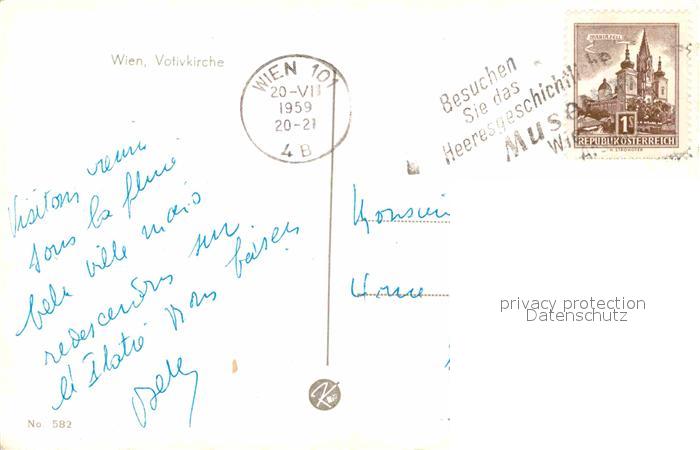 Wien, Votivkirche
WIEN 101
20-VII
1959
20-21
4 B
Besuchen
Sie das
Heeresgeschichtliche
Museum
Wi
MARIAZELL
1S
REPUBLIK ÖSTERREICH
Visitons
sous la pluie
belle ville mais
redescendons sur
Nous
Monsieur
privacy protection
Datenschutz
No. 582